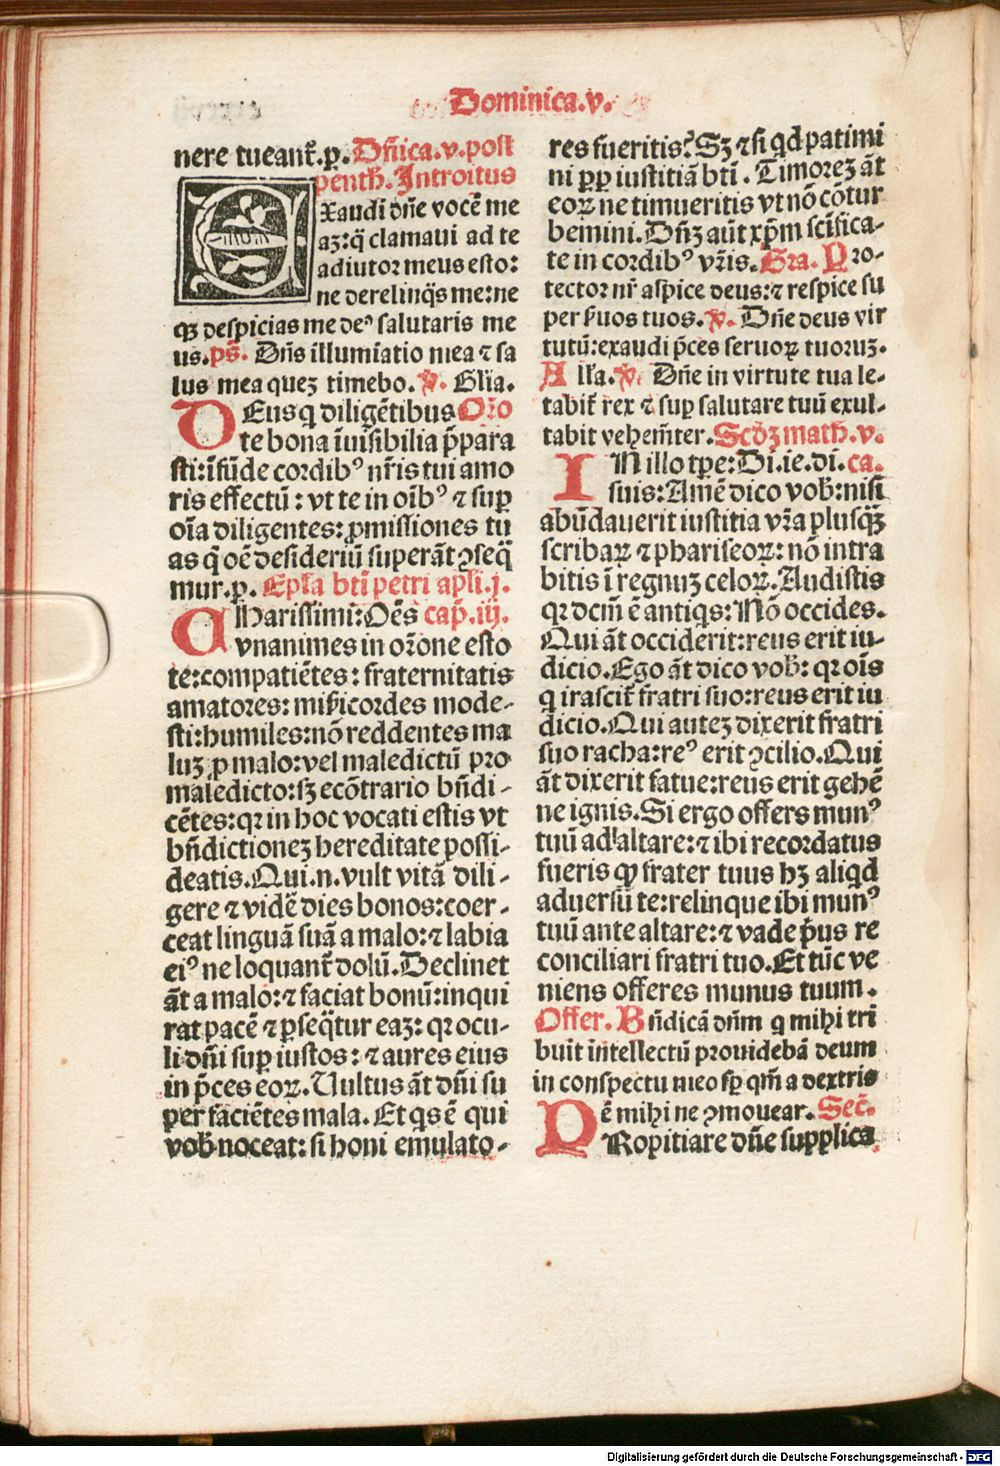 Dominica.v.
nere tueant᷑.p̲. Dñica.v.post
penth̃. Introitus
Exaudi dñe vocē me
aȝ:q̃ clamaui ad te
adiutoꝛ meus esto:
ne derelinq̃s me:ne
qȝ despicias me deꝰ salutaris me
us.pš. Dñs illumīatio mea ⁊ sa
lus mea queȝ timebo. ℣. Glĩa.
DEus q diligētibus Oꝛ̃o
te bona īuisibilia p̃para
sti:īfūde coꝛdibꝰ nr̃is tui amo
ris effectū: vt te in oĩbꝰ ⁊ sup̲
oĩa diligentes: ꝓmissiones tu
as q̃ oē desideriū superāt ꝯseq̃
mur.p̲. Ep̃la bti petri apl̃i.j.
CHarissimi:Oēs cap̃.iij.
vnanimes in oꝛ̃one esto
te:compatiētes: fraternitatis
amatoꝛes: mis̃icoꝛdes mode-
sti:humiles:nō reddentes ma
luȝ ꝓ malo:vel maledictū pꝛo
maledicto:sȝ ecōtrario bñdi-
cētes:qꝛ in hoc vocati estis vt
bñdictioneȝ hereditate possi-
deatis.Qui.n.vult vitā dili-
gere ⁊ vidē dies bonos:coer-
ceat linguā suā a malo:⁊ labia
eiꝰ ne loquant᷑ dolū.Declinet
āt a malo:⁊ faciat bonū:inqui
rat pacē ⁊ p̲seq̃tur eaȝ: qꝛ ocu-
li dñi sup̲ iustos: ⁊ aures eius
in p̃ces eoꝝ. Uultus āt dñi su
per faciētes mala. Et qs ē qui
vob̃ noceat: si boni emulato-
res fueritis? Sȝ ⁊ si qd patimi
ni pp̲ iustitiā btī. Timoꝛeȝ āt
eoꝝ ne timueritis vt nō cōtur
bemini. Dñȝ aūt xp̃m sc̃ifica-
te in coꝛdibꝰ vr̃is. Gra. Pꝛo-
tectoꝛ nr̃ aspice deus:⁊ respice su
per s̃uos tuos. ℣. Dñe deus vir
tutū:exaudi p̃ces seruoꝝ tuoꝛuȝ.
Alla. ℣. Dñe in virtute tua le-
tabit᷑ rex ⁊ sup̲ salutare tuū exul-
tabit vehem̃ter. Scd̃ȝ math̃.v.
IN illo tp̲e:Di.ie.di. ca.
suis:Amē dico vob̃:nisi
abūdauerit iustitia vr̃a plusq̃ȝ
scribaꝝ ⁊ phariseoꝝ: nō intra
bitis ī regnuȝ celoꝝ. Audistis
qꝛ dcm̃ ē antiqs: Nō occides.
Qui āt occiderit:reus erit iu-
dicio. Ego āt dico vob̃: qꝛ oĩs
q irascit᷑ fratri suo:reus erit iu
dicio.Qui auteȝ dixerit fratri
suo racha:reꝰ erit ꝯcilio.Qui
āt dixerit fatue:reus erit gehē
ne ignis. Si ergo offers munꝰ
tuū ad altare:⁊ ibi recoꝛdatus
fueris qꝙ frater tuus hȝ aliqd
aduersū te:relinque ibi munꝰ
tuū ante altare:⁊ vade p̃us re
conciliari fratri tuo. Et tūc ve
niens offeres munus tuum.
Offer. Bñdicā dnm̃ q mihi tri
buit intellectū pꝛouidebā deum
in conspectu meo sp̲ qm̃ a dextris
ē mihi ne ꝯmouear. Sec̃.
PRopitiare dñe supplica
Digitalisierung gefördert durch die Deutsche Forschungsgemeinschaft - DFG